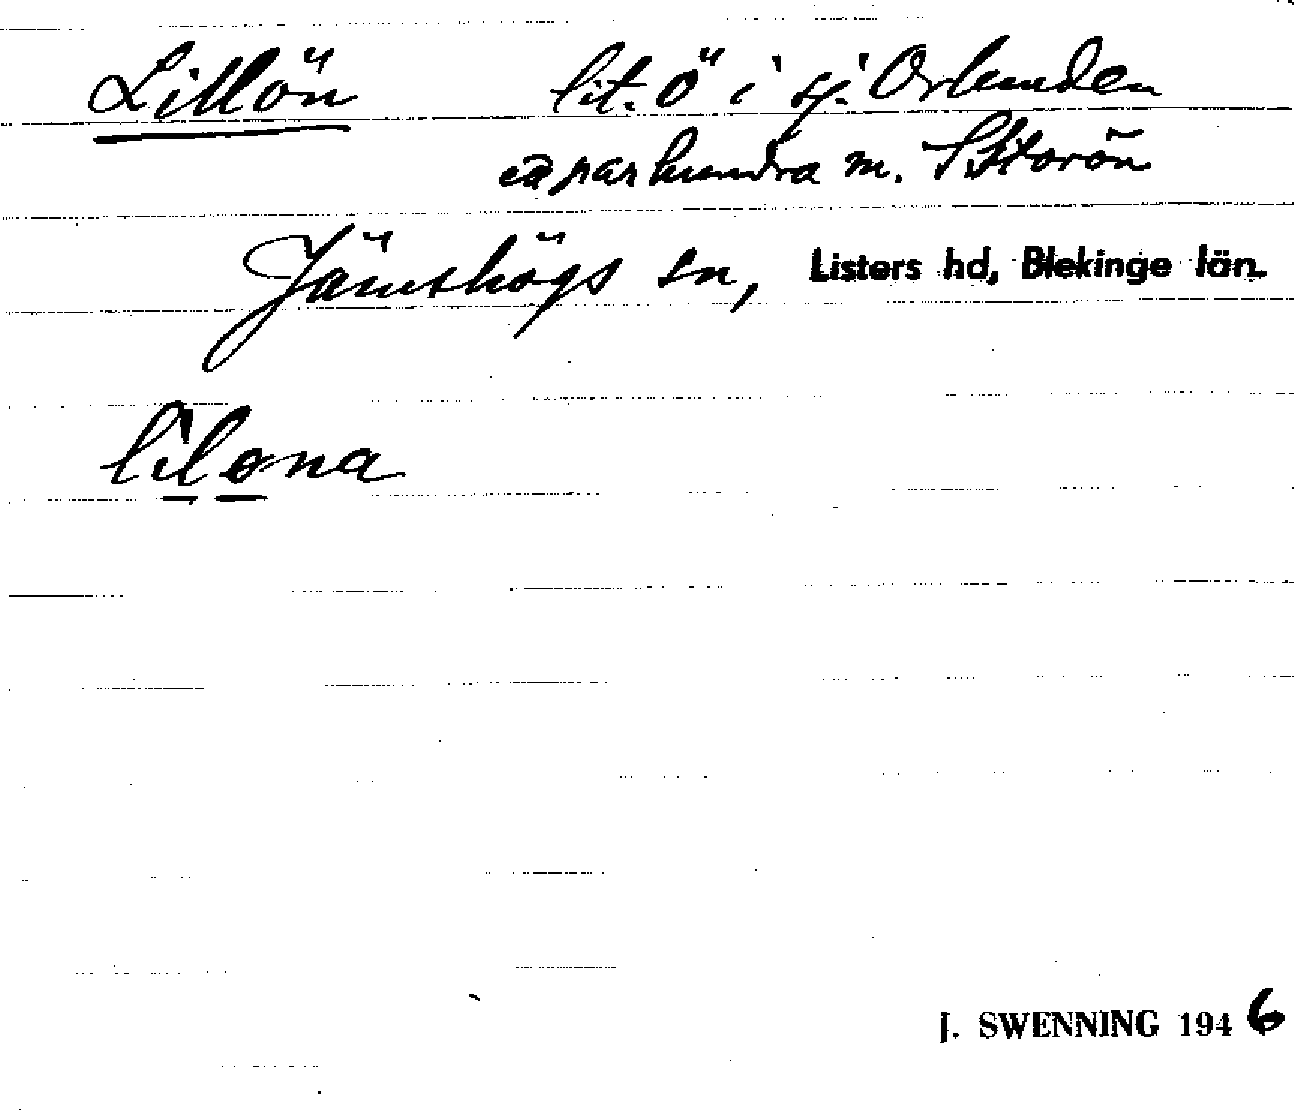 Lillön lit. ö i sj. Orlunden
ca par hundra m. S Storön
Jämshögs sn, Listers hd, Blekinge län.
lilöna
J. SWENNING 1946